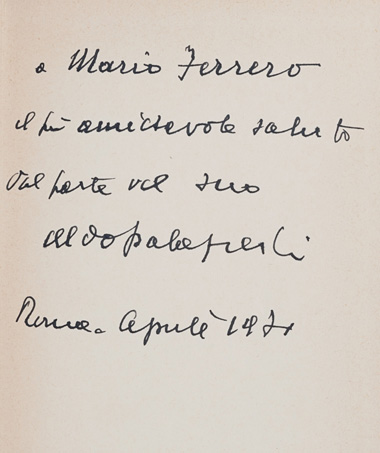 a Mario Ferrero
il più amichevole saluto
dal parte del suo
aldo palazzeschi
Roma. Aprile 1971